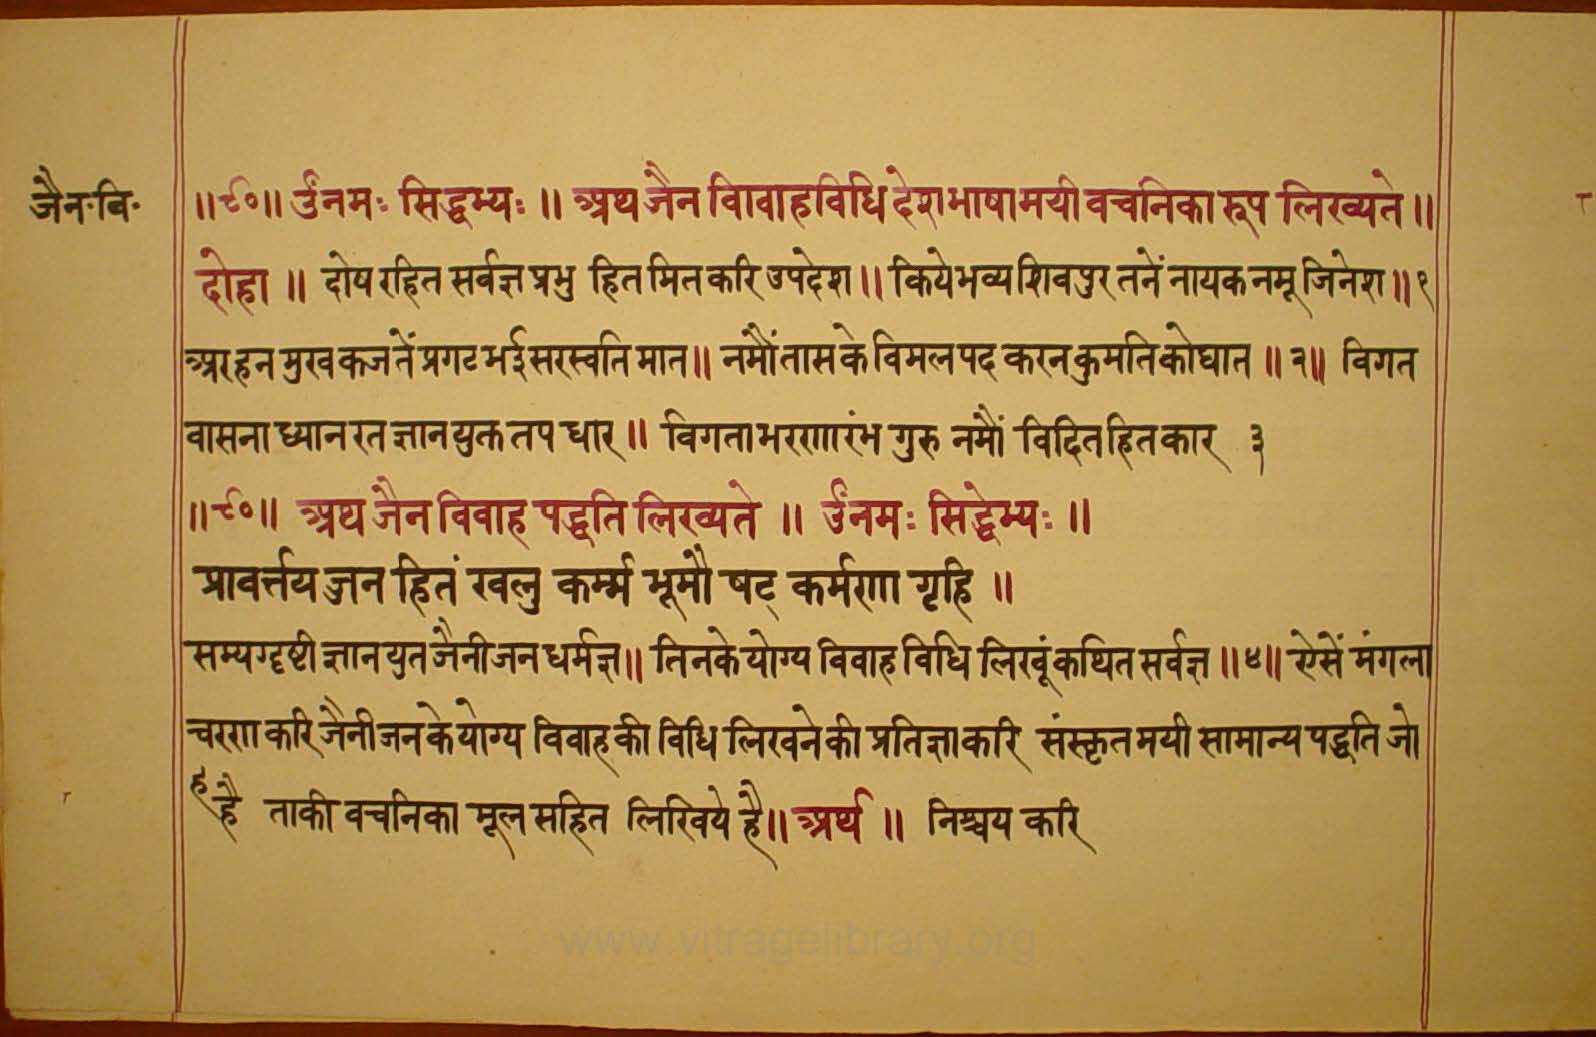 जैन·वि·
॥९०॥ उँनमः सिद्धभ्यः ॥ अथ जैन विावाहविधि देशभाषामयी वचनिका रूप लिख्यते॥
दोहा ॥ दोष रहित सर्वज्ञ प्रभु हित मित करि उपदेश॥ किये भव्य शिवपुर तनें नायक नमू जिनेश॥१
अरहन मुख कज तें प्रगट भई सरस्वति मात॥ नमौं तास के विमल पद करन कुमति को घात ॥२॥ विगत
वासना ध्यान रत ज्ञान युक्त तप धार॥ विगताभरणारंभ गुरु नमौं विदित हितकार ३
॥९०॥ अथ जैन विवाह पद्धति लिख्यते ॥ उँनमः सिद्धेभ्यः॥
प्रावर्त्तय जन हितं खलु कर्म्म भूमौ षट् कर्मणा गृहि ॥
सम्यग्दृष्टी ज्ञान युत जैनी जन धर्मज्ञ॥ तिनके योग्य विवाह विधि लिखूं कथित सर्वज्ञ ॥४॥ ऐसें मंगला
चरण करि जैनी जन के योग्य विवाह की विधि लिखने की प्रतिज्ञा करि संस्कृत मयी सामान्य पद्धति जो
है ताकी वचनिका मूल सहित लिखिये है॥ अर्थ ॥ निश्चय करि
www.vitragelibrary.org